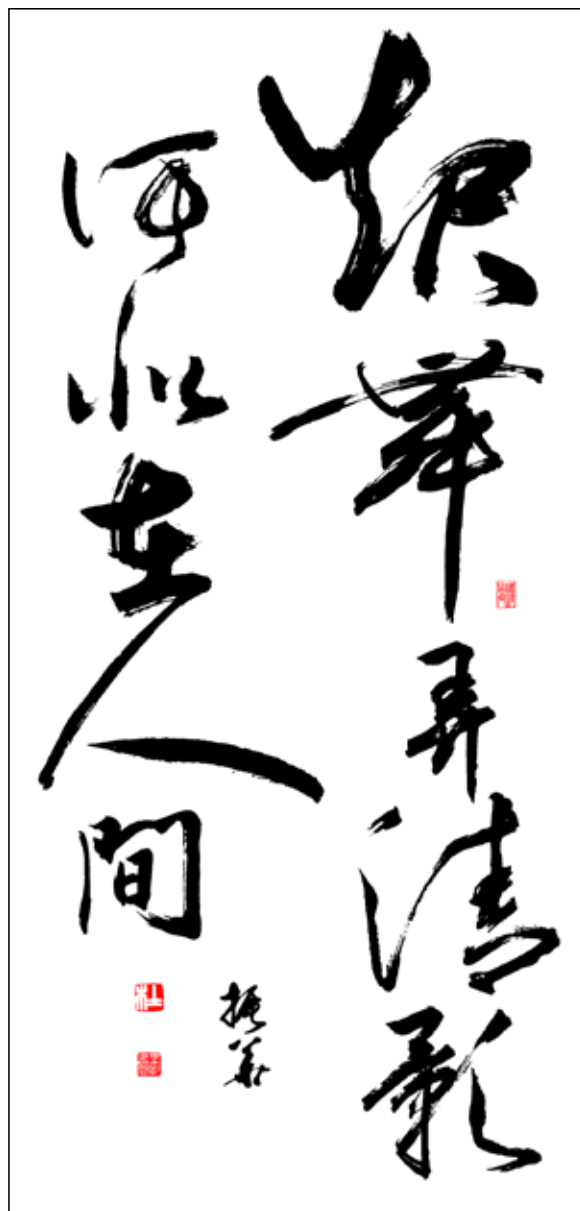 起舞弄清影
何似在人間
振華
杜